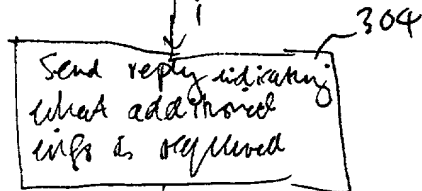 304
Send reply indicating
what additional
info is required